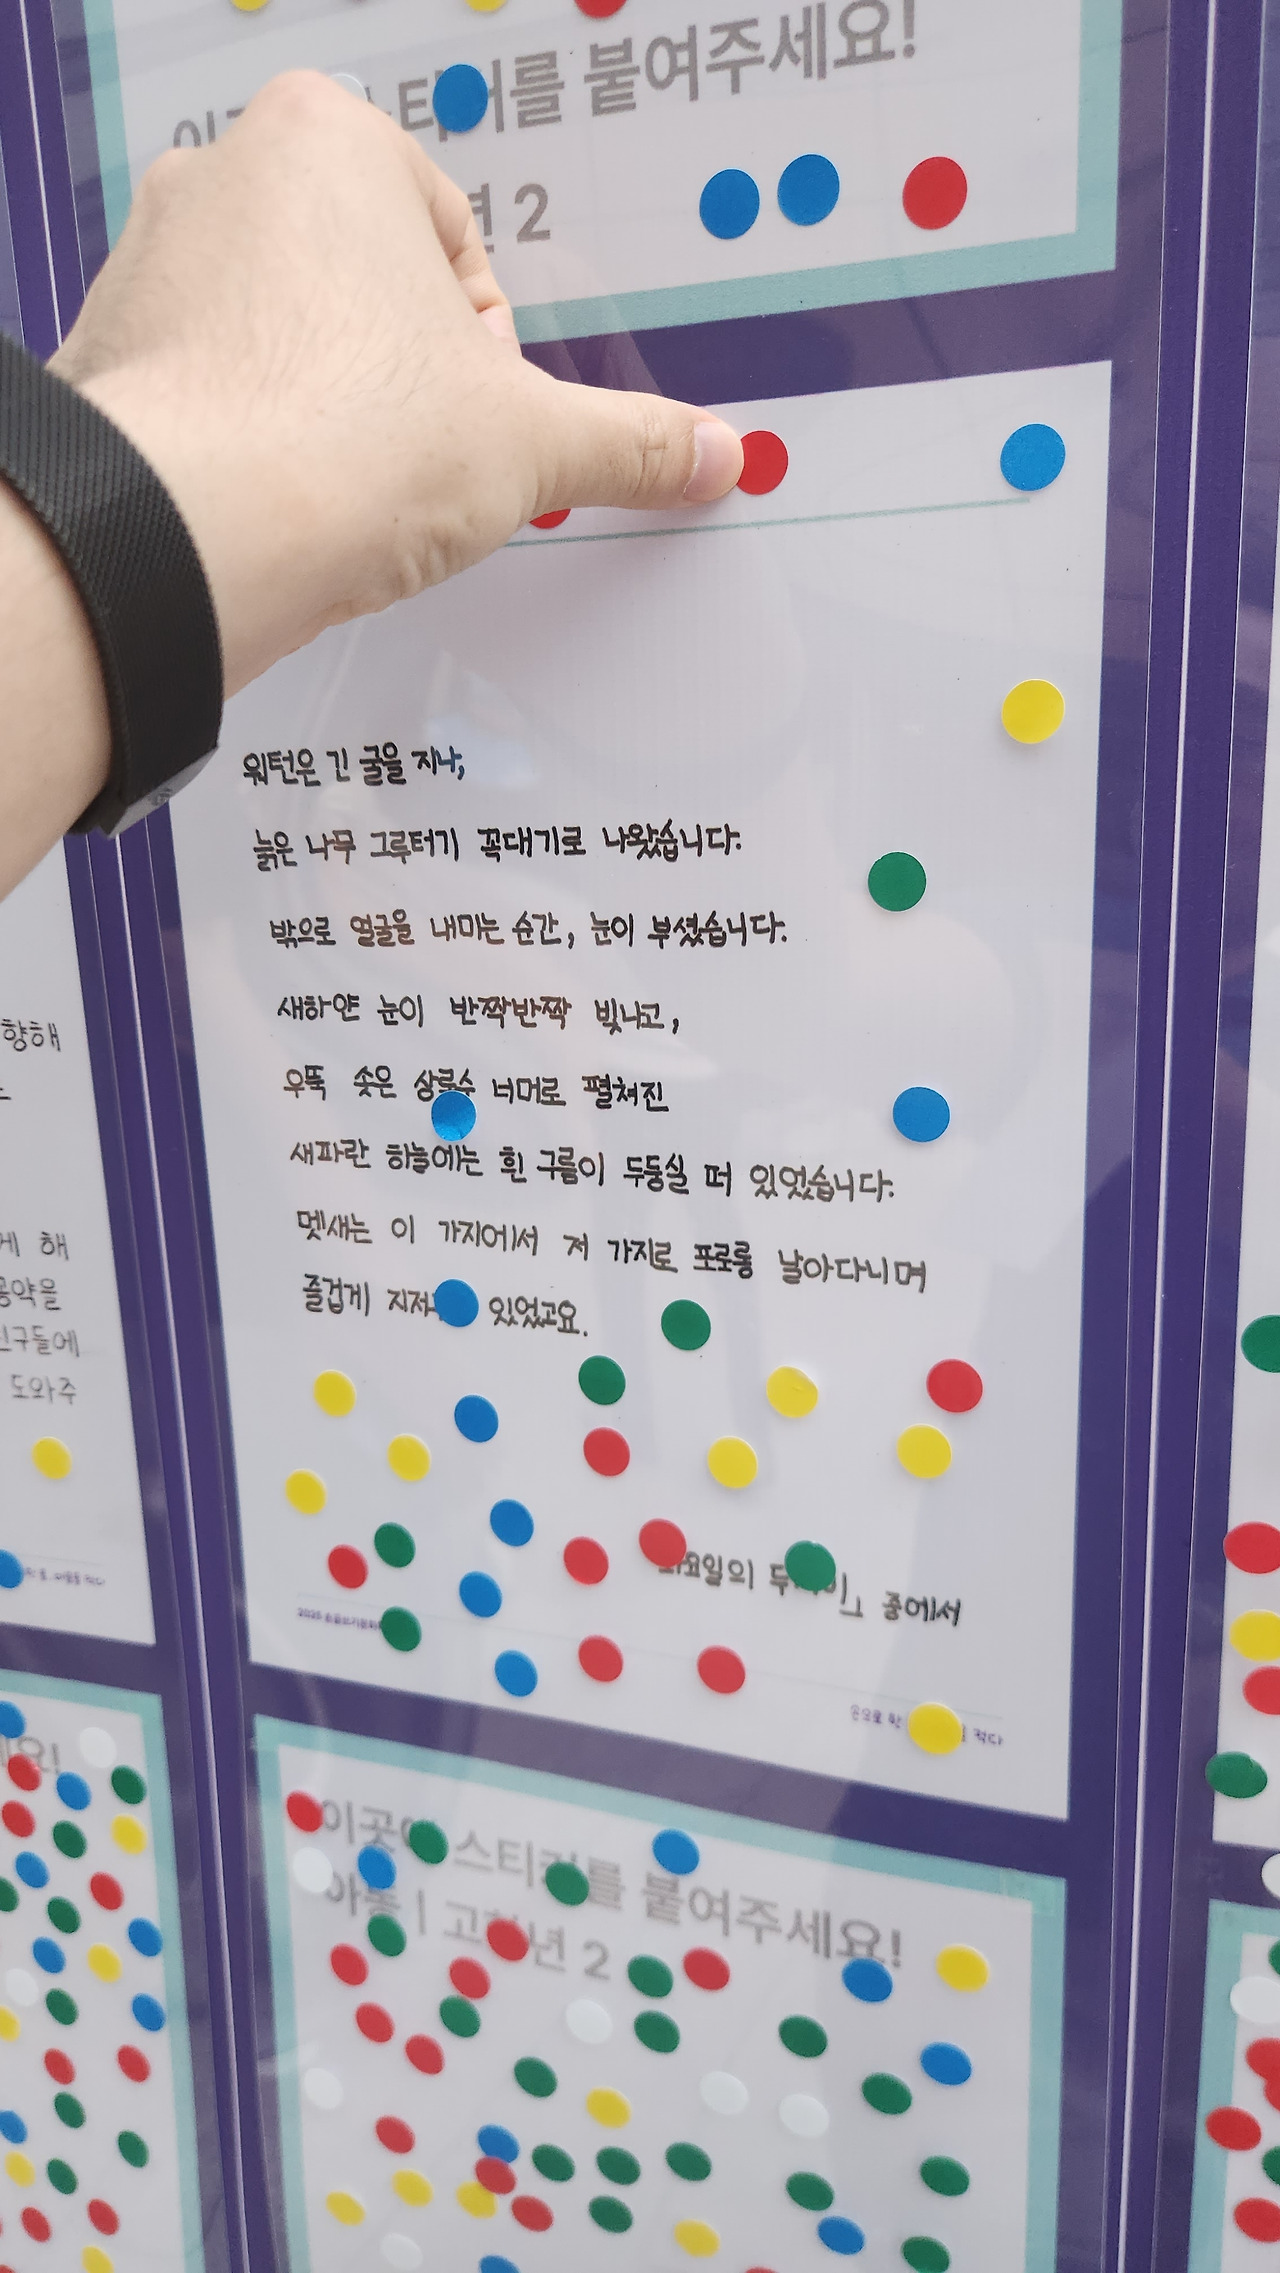 스티커를 붙여주세요!
년 2
워턴은 긴 굴을 지나,
늙은 나무 그루터기 꼭대기로 나왔습니다.
밖으로 얼굴을 내미는 순간, 눈이 부셨습니다.
새하얀 눈이 반짝반짝 빛나고,
우뚝 솟은 상록수 너머로 펼쳐진
새파란 하늘에는 흰 구름이 두둥실 떠 있었습니다.
멧새는 이 가지에서 저 가지로 포로롱 날아다니며
즐겁게 있었고요.
중에서
손으로 적다
향해
게 해
도와주
이곳에 스티커를 붙여주세요!
아동 | 고학년 2